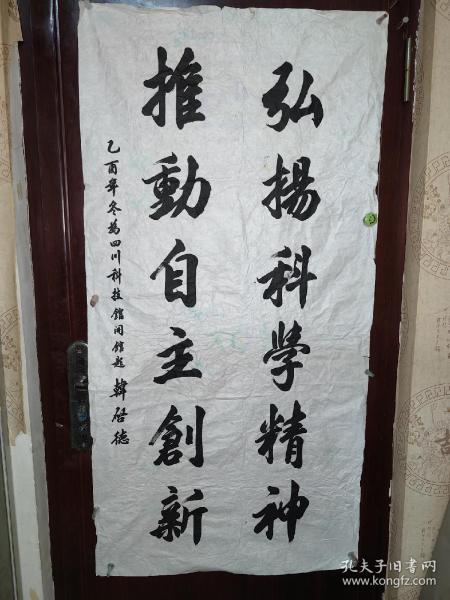 弘揚科學精神
推動自主創新
乙酉年冬為四川科技館開館題 韓啓德
孔夫子旧书网
www.kongfz.com